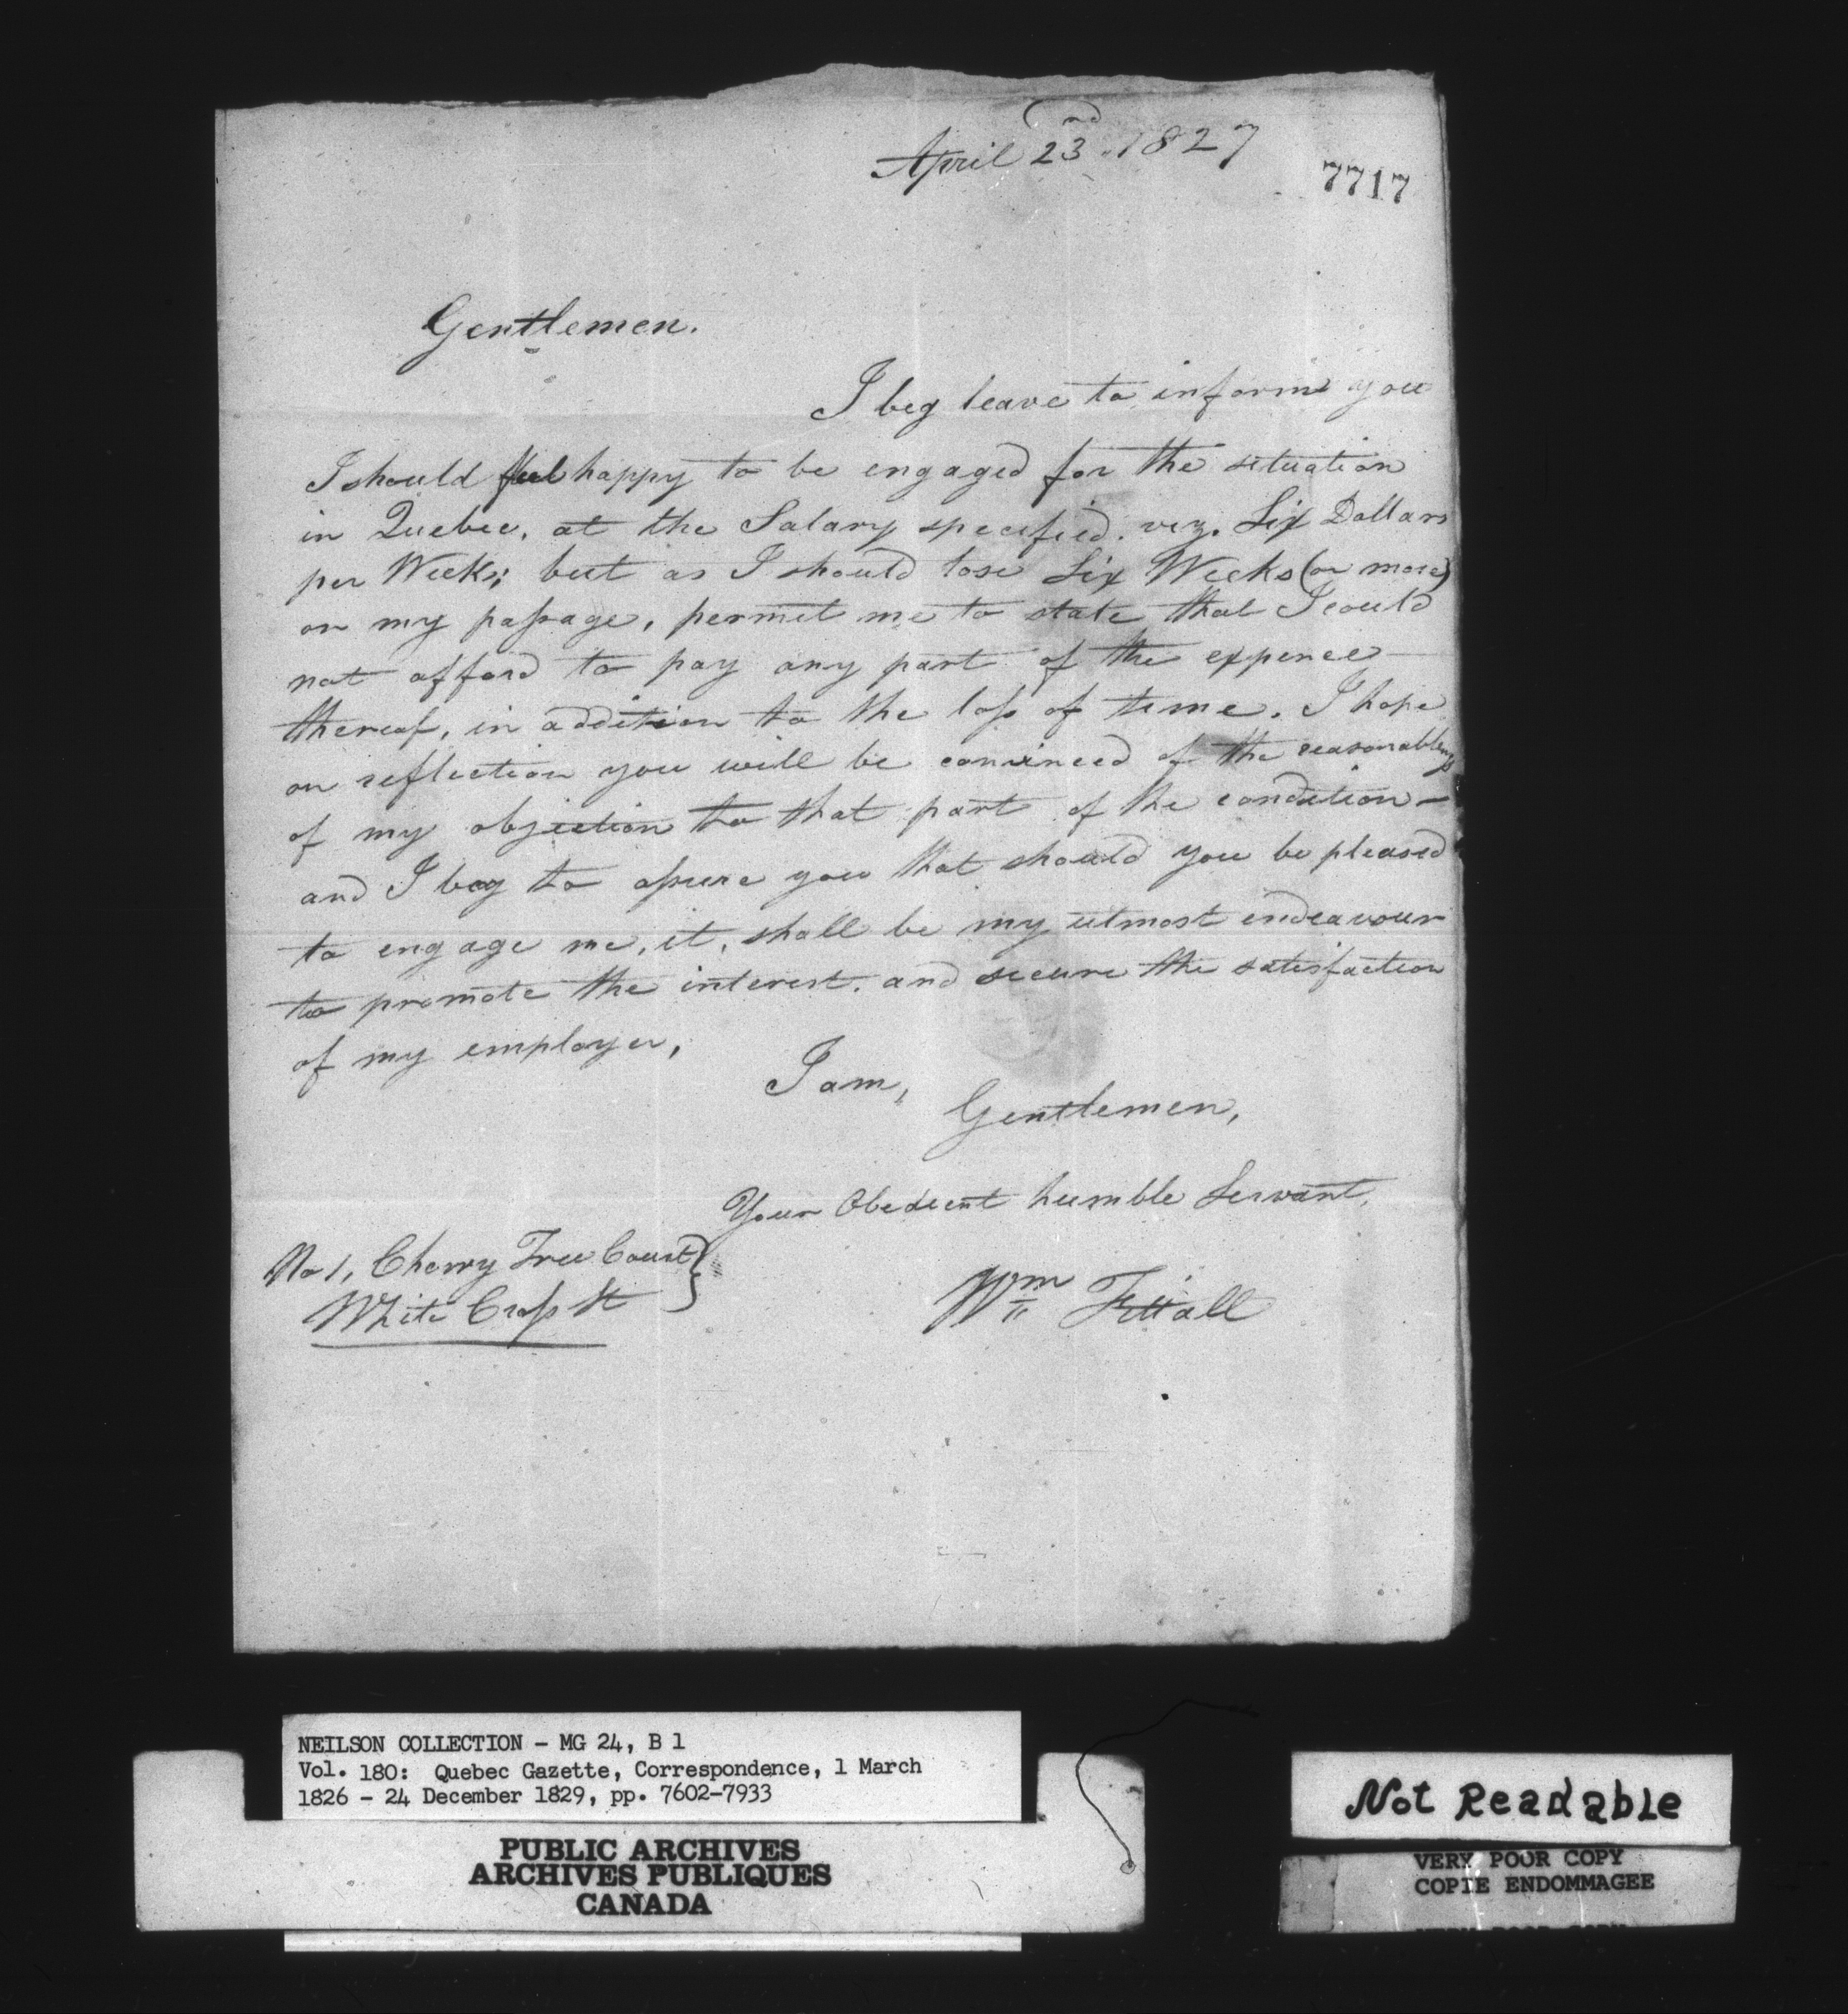 April 23nd 1827
7717
Gentlemen.
I beg leave to inform you
I should feel happy to be engaged for the situation
in Quebec, at the Salary specified. viz. Six Dollars
per Week; but as I should lose Six Weeks (or more)
on my passage, permit me to state that I could
not afford to pay any part of the expence
thereof, in addition to the loss of time. I hope
on reflection you will be convinced of the reasonableness
of my objection to that part of the condition—
and I beg to assure you that should you be pleased
to engage me, it, shall be my utmost endeavour
to promote the interest. and secure the satisfaction
of my employer,
I am,
Gentlemen,
Your Obedient humble Servant,
No 1, Cherry Tree Court
White Cross St
Wm
NEILSON COLLECTION - MG 24, B 1
Vol. 180: Quebec Gazette, Correspondence, 1 March
1826 - 24 December 1829, pp. 7602-7933
PUBLIC ARCHIVES
ARCHIVES PUBLIQUES
CANADA
Not Readable
VERY POOR COPY
COPIE ENDOMMAGEE